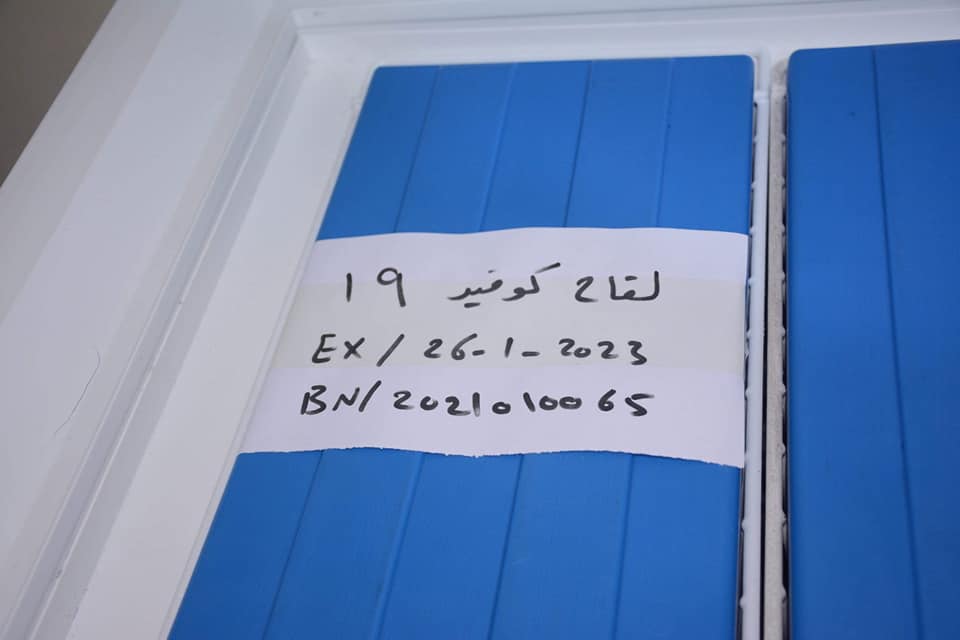 لقاح كوفيد 19
EX / 26-1-2023
BN/ 2021010065